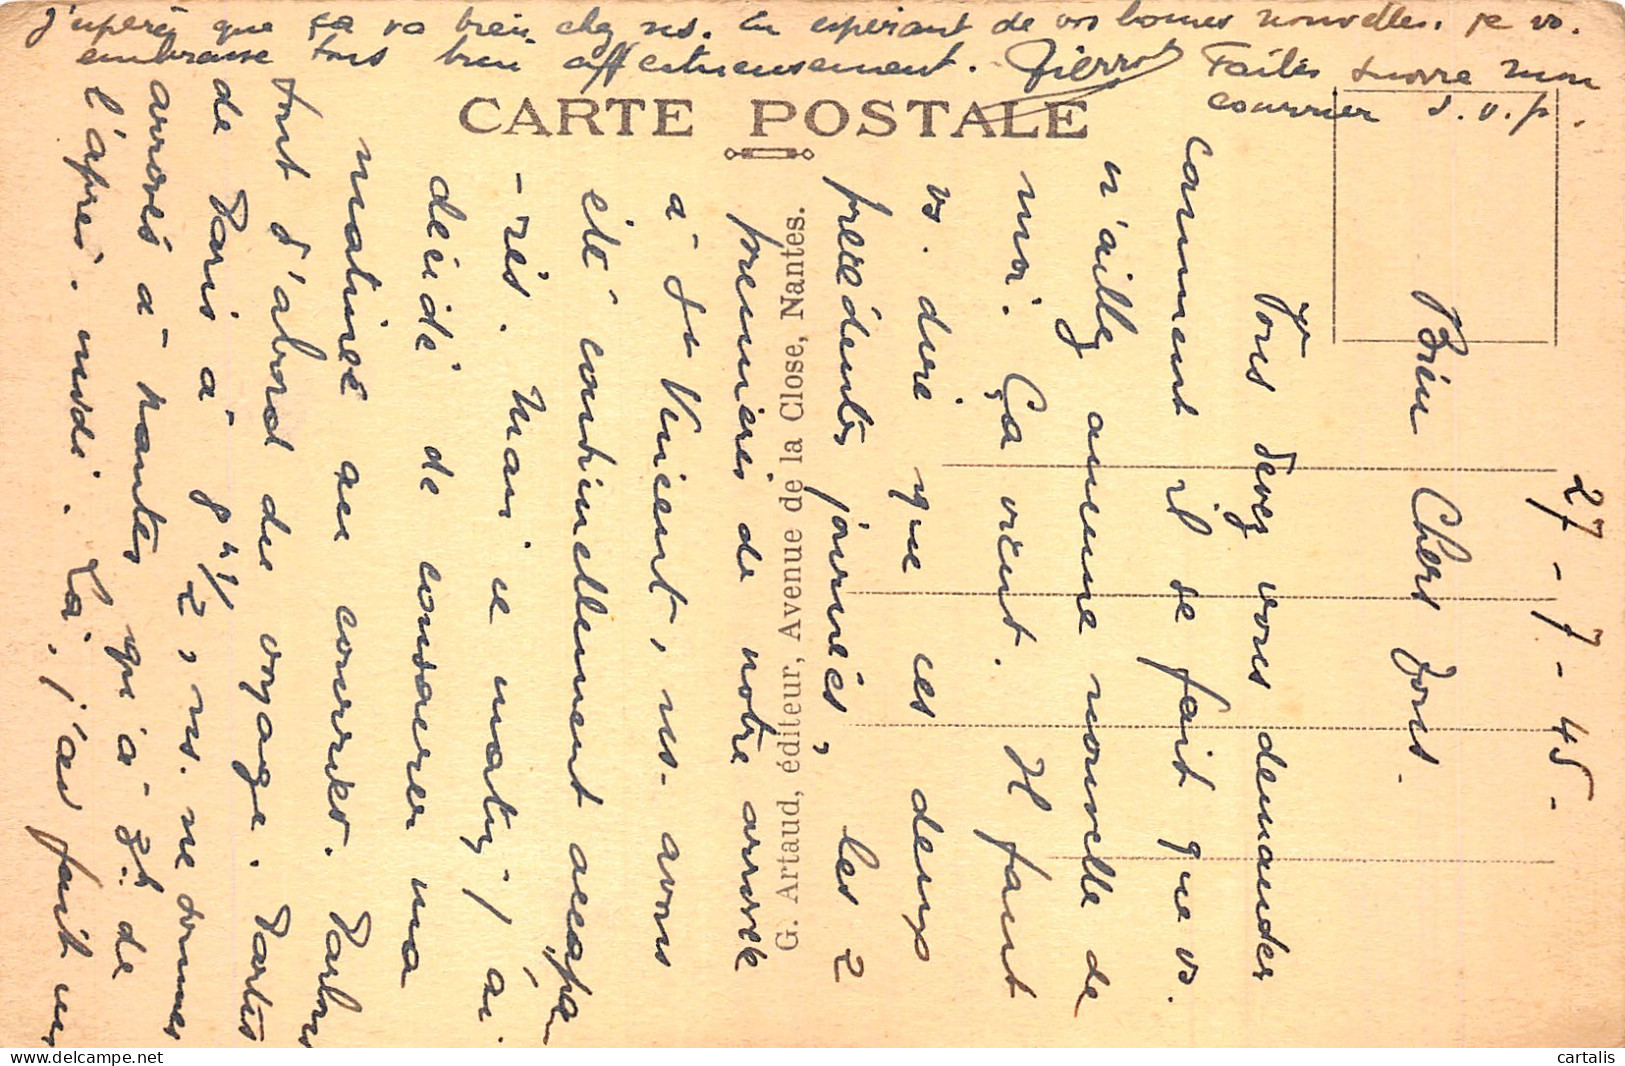 27-7-45-
Bien Chers Tous.
Vous devez vous demander
comment il se fait que vs.
n'aillez aucune nouvelle de
moi. Ça vient. Il faut
vs. dire que ces deux
precédentes journées, les 2
premieres de notre arrivée
à St Vincent, ns. avons
été continuellement accapa
-rés. Mais ce matin, j'ai
décidé de consacrer ma
matinée au courrier. Parlons
tout d'abord du voyage. Partis
de Paris à 8h 1/2, ns. ne sommes
arrivés à Nantes qu'à 3h. de
l'après-midi. Là, j'ai fait un
j'espère que ça va bien chez ns. En espérant de vos bonnes nouvelles. je vs.
embrasse tous bien affectueusement. Pierrot Faites suivre mon
courrier s.v.p.
CARTE POSTALE
G. Artaud, éditeur, Avenue de la Close, Nantes.
cartalis